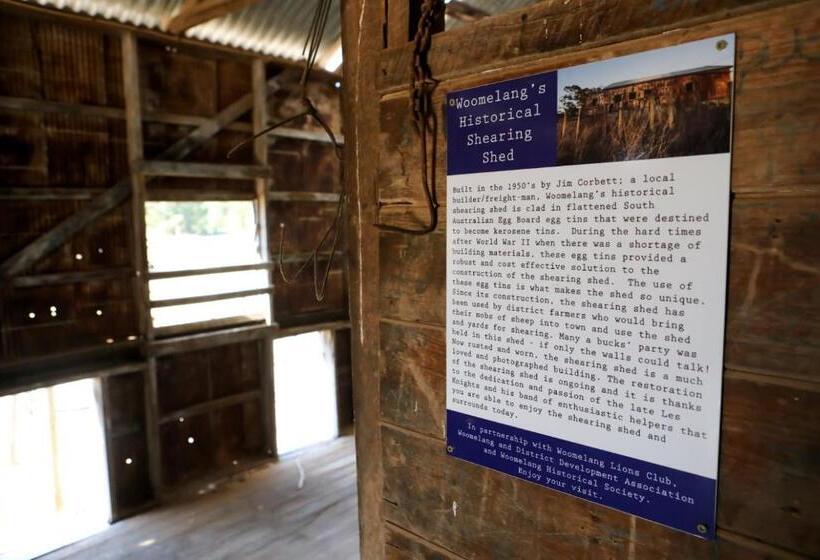 Woomelang's
Historical
Shearing
Shed
Built in the 1950's by Jim Corbett; a local
builder/freight-man, Woomelang's historical
shearing shed is clad in flattened South
Australian Egg Board egg tins that were destined
to become kerosene tins. During the hard times
after World War II when there was a shortage of
building materials, these egg tins provided a
robust and cost effective solution to the
construction of the shearing shed. The use of
these egg tins is what makes the shed so unique.
Since its construction, the shearing shed has
been used by district farmers who would bring
their mobs of sheep into town and use the shed
and yards for shearing. Many a bucks' party was
held in this shed - if only the walls could talk!
Now rusted and worn, the shearing shed is a much
loved and photographed building. The restoration
of the shearing shed is ongoing and it is thanks
to the dedication and passion of the late Les
Knights and his band of enthusiastic helpers that
you are able to enjoy the shearing shed and
surrounds today.
In partnership with Woomelang Lions Club,
Woomelang and District Development Association
and Woomelang Historical Society.
Enjoy your visit.